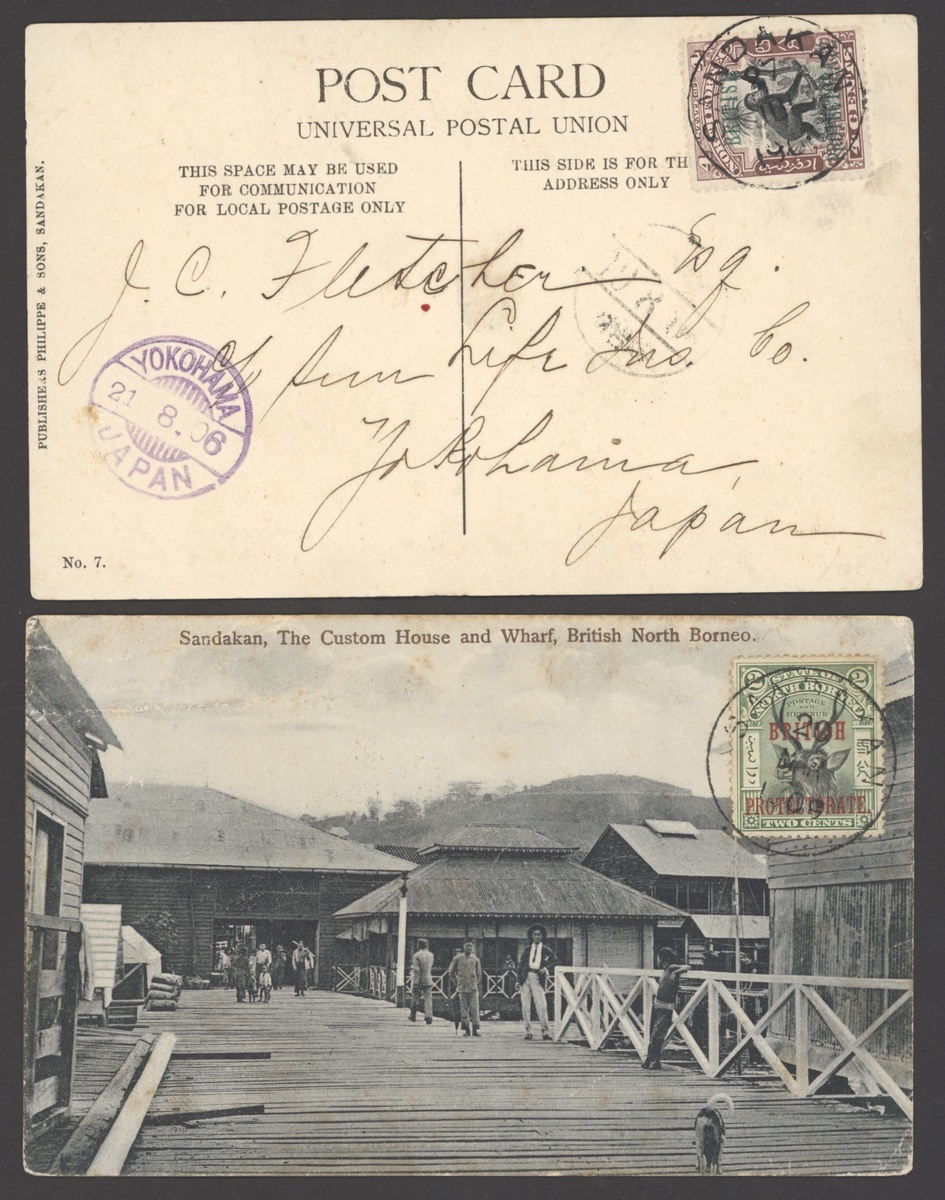 POST CARD
UNIVERSAL POSTAL UNION
THIS SPACE MAY BE USED
FOR COMMUNICATION
FOR LOCAL POSTAGE ONLY
THIS SIDE IS FOR TH
ADDRESS ONLY
SANDAKAN
PUBLISHERS PHILIPPE & SONS, SANDAKAN.
J. C. Fletcher Esq.
c/o Sun Life Ins. Co.
Yokohama,
Japan
YOKOHAMA
21 8.06
JAPAN
No. 7.
Sandakan, The Custom House and Wharf, British North Borneo.
2 STATE OF 2
NORTH BORNEO
POSTAGE
AND
REVENUE
BRITISH
PROTECTORATE.
TWO CENTS